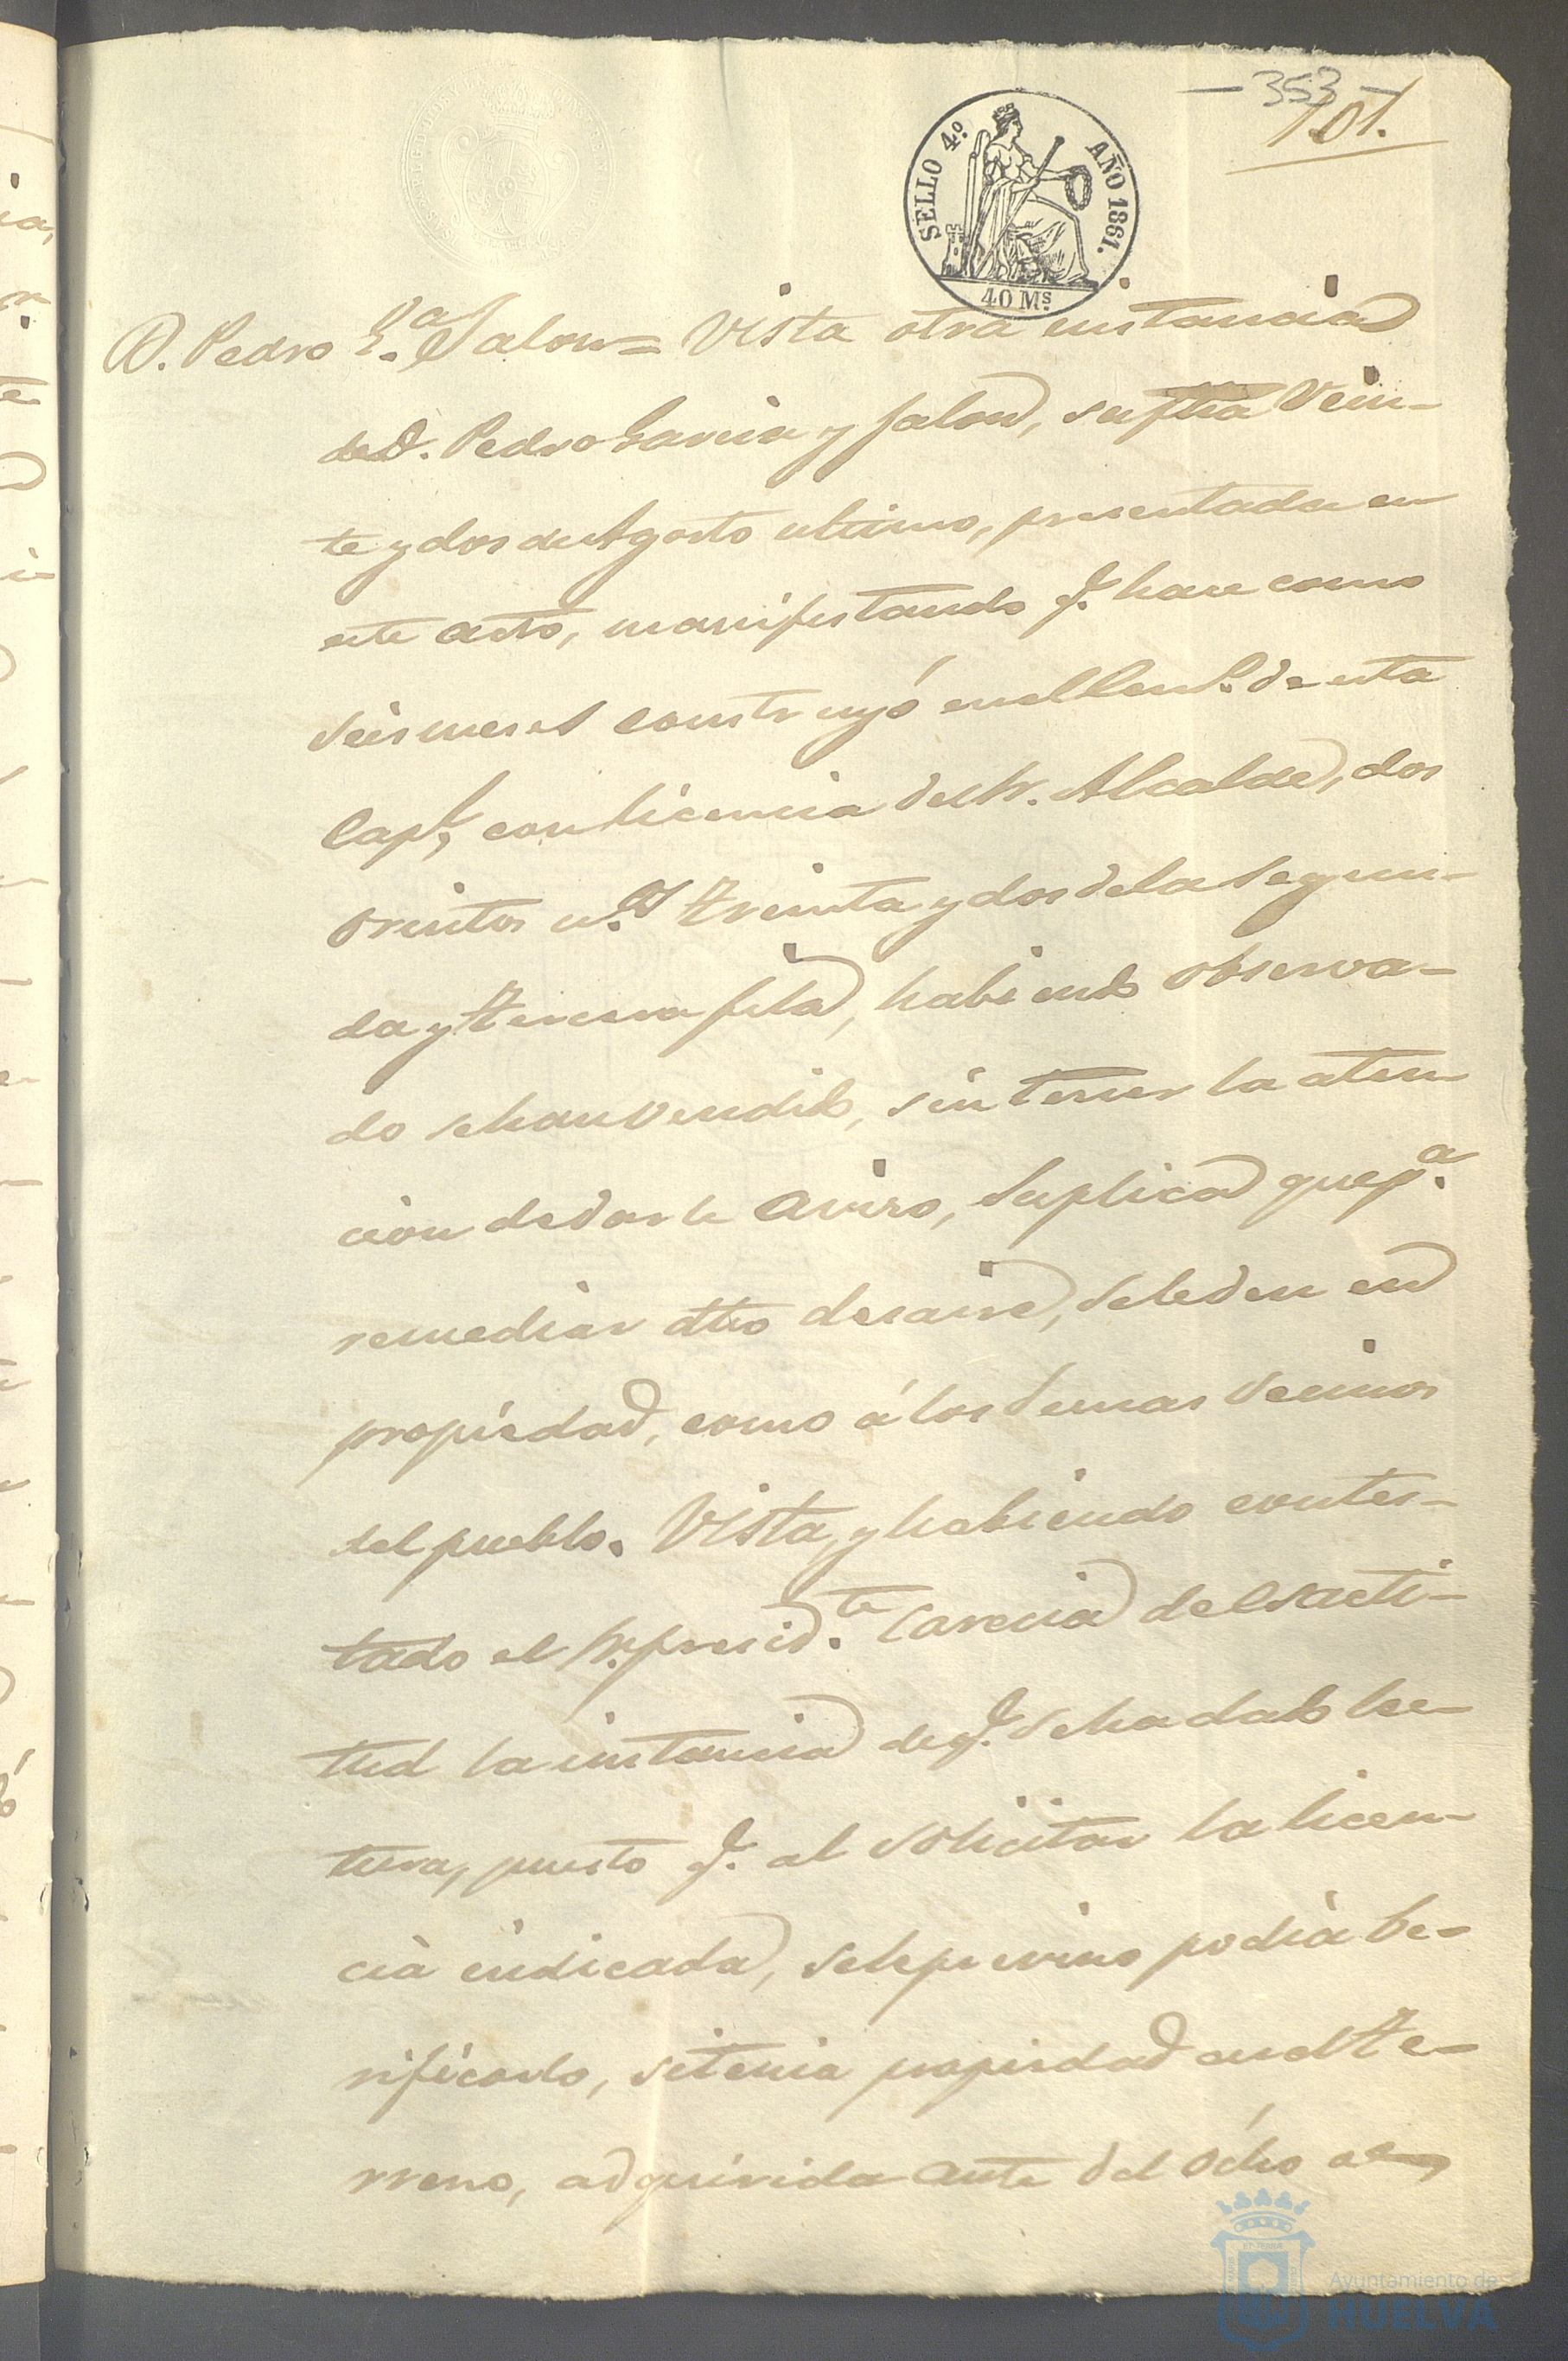 — 353 —
101.
SELLO 4º. AÑO 1861.
40 Ms.
D. Pedro G.a Jalon = Vista otra instancia
de D. Pedro Garcia y Jalon, su fha Vein-
te y dos de Agosto ultimo, presentada en
este acto, manifestando q. hace como
seis meses construyó en el Cem.º de esta
Cap.l, con licencia del Sr. Alcalde, dos
nichos n.os treinta y dos de la segun-
da y tercera fila, habiendo observa-
do se han vendido, sin tener la aten
cion de darle aviso, Suplica que p.a
remediar dho desaire, se le den en
propiedad, como á los demas vecinos
del pueblo. Vista, y habiendo contes-
tado el Sr. presid.te carecia de esacti-
tud la instancia de q. se ha dado lec-
tura, puesto q. al solicitar la licen-
cia indicada, se le previno podia ve-
rificarlo, si tenia propiedad en el te-
rreno, adquirida ante del ócho de
Ayuntamiento de
HUELVA